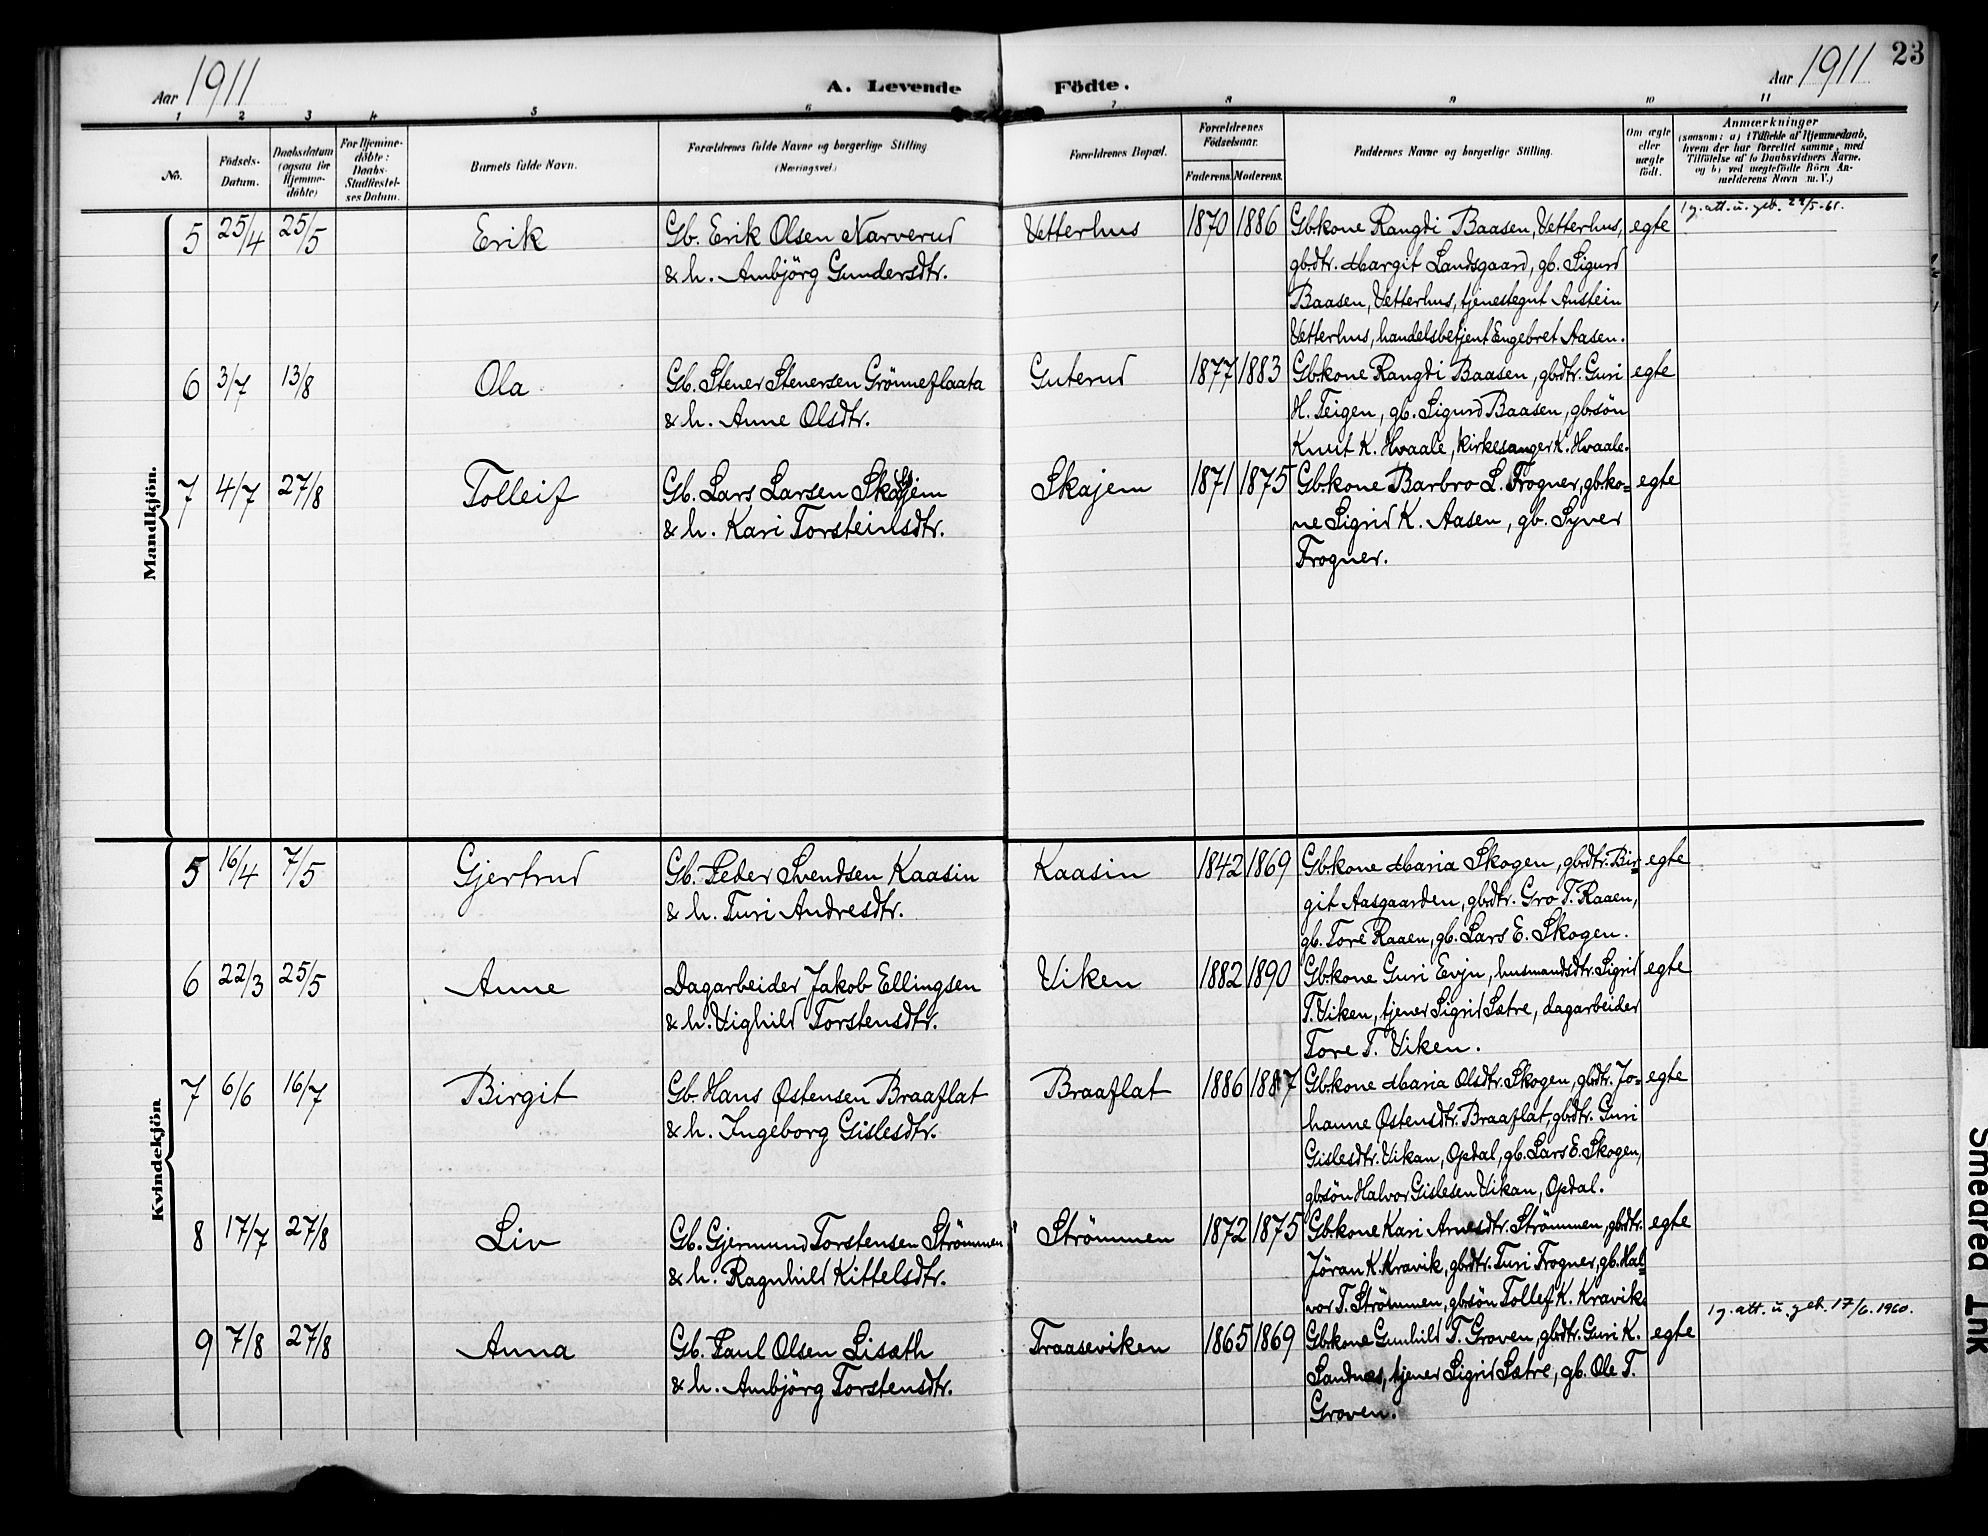 Aar 1911
A. Levende Födte.
Aar 1911
23
1 2 3 4 5 6 7 8 9 10 11
No.
Födsels-Datum.
Daabsdatum (ogsaa for Hjemmedöbte)
For Hjemmedöbte: Daabs-Stadfæstelses Datum.
Barnets fulde Navn.
Forældrenes fulde Navne og borgerlige Stilling (Næringsvei)
Forældrenes Bopæl.
Forældrenes Födselsaar.
Faderens. Moderens.
Faddernes Navne og borgerlige Stilling.
Om ægte eller uægte födt.
Anmærkninger
(saasom: a) i Tilfælde af Hjemmedaab, hvem der har forrettet samme, med Tilföielse af to Daabsvidners Navne, og b) ved uægtefödte Börn Anmelderens Navn m. V.)
Mandkjön.
5 25/4 25/5 Erik Gb. Erik Olsen Narverud Vetterhus 1870 1886 Gbkone Rangdi Baasen, Vetterhus, egte 1 g. att. u. geb. 29/5-61.
& h. Ambjörg Gundersdtr. gbdtr. Margit Landsgaard, gb. Sigurd
Baasen, Vetterhus, tjenestegut Anstein
Vetterhus, handelsbetjent Engebret Aasen.
6 3/7 13/8 Ola Gb. Stener Stenersen Grönneflaata Guterud 1877 1883 Gbkone Rangdi Baasen, gbdtr. Guri egte
& h. Anne Olsdtr. H. Teigen, gb. Sigurd Baasen, gbsön
Knut K. Hvaale, kirkesanger K. Hvaale.
7 4/7 27/8 Tolleif Gb. Lars Larsen Skajem Skajem 1871 1875 Gbkone Barbro L. Frogner, gbko= egte
& h. Kari Torsteinsdtr. ne Sigrid K. Aasen, gb. Syver
Frogner.
Kvindekjön
5 16/4 7/5 Gjertrud Gb. Peder Svendsen Kaasin Kaasin 1842 1869 Gbkone Maria Skogen, gbdtr. Bir= egte
& h. Turi Andresdtr. git Aasgaarden, gbdtr. Gro T. Raaen,
gb. Tore Raaen, gb. Lars E. Skogen.
6 22/3 25/5 Anne Dagarbeider Jakob Ellingsen Viken 1882 1890 Gbkone Guri Evju, husmandsdtr. Sigrid egte
& h. Vighild Torstensdtr. T. Viken, tjener Sigrid Sætre, dagarbeider
Tore T. Viken.
7 6/6 16/7 Birgit Gb. Hans Østensen Braaflat Braaflat 1886 1887 Gbkone Maria Olsdtr. Skogen, gbdtr. Jo= egte
& h. Ingeborg Gislesdtr. hanne Østensdtr. Braaflat, gbdtr. Guri
Gislesdtr. Vikan, Opdal, gb. Lars E. Skogen,
gbsön Halvor Gislesen Vikan, Opdal.
8 17/7 27/8 Liv Gb. Gjermund Torstensen Strömmen Strömmen 1872 1875 Gbkone Kari Arnesdtr. Strömmen, gbdtr. egte
& h. Ragnhild Kittelsdtr. Jöran K. Kravik, gbdtr. Turi Frogner, gb. Hal=
vor T. Strömmen, gbsön Tollef K. Kravik.
9 7/8 27/8 Anna Gb. Paul Olsen Liseth Traaseviken 1865 1869 Gbkone Gunhild T. Groven, gbdtr. Guri K. egte 1 g. att. u. geb. 17/6. 1960.
& h. Ambjörg Torstensdtr. Sandnes, tjener Sigrid Sætre, gb. Ole T.
Groven.
Smeared Ink